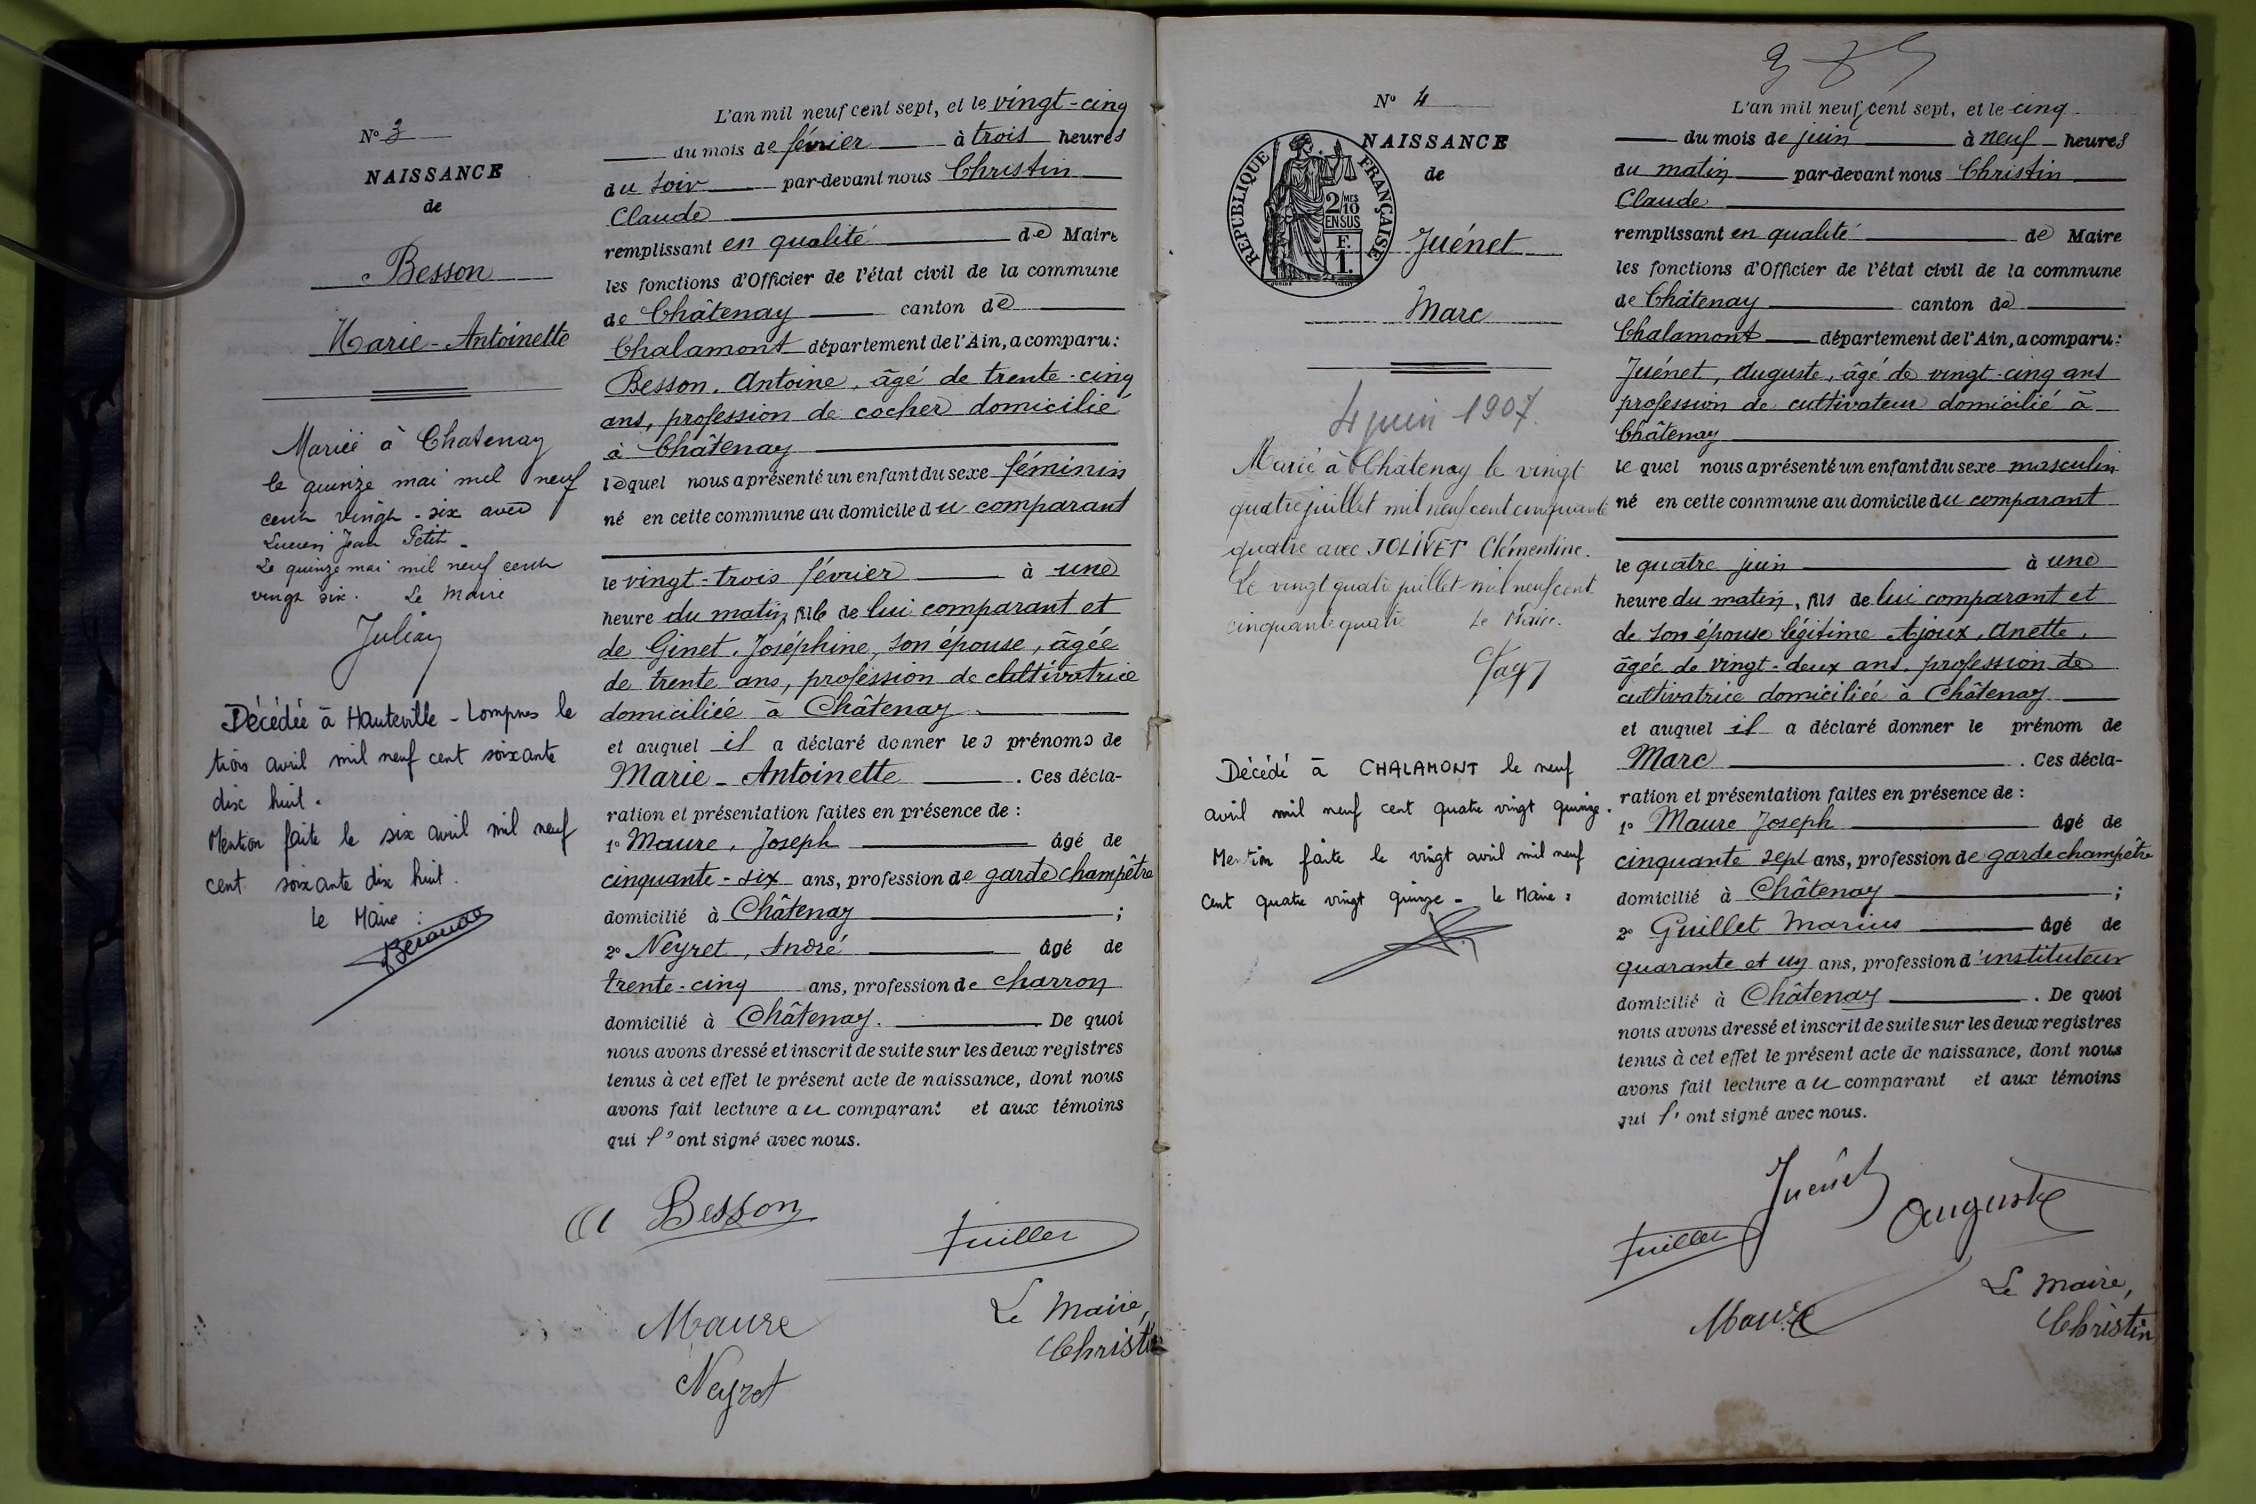 N° 3
NAISSANCE
de
Besson
Marie-Antoinette
Mariée à Chatenay
le quinze mai mil neuf
cent vingt-six avec
Lucien Jean Petit.
Le quinze mai mil neuf cent
vingt six. Le Maire
Décédée à Hauteville-Lompnes le
trois avril mil neuf cent soixante
dix huit.
Mention faite le six avril mil neuf
cent soixante dix huit.
Le Maire :
L'an mil neuf cent sept, et le vingt-cinq
du mois de février à trois heures
du soir par-devant nous Christin
Claude
remplissant en qualité de Maire
les fonctions d'Officier de l'état civil de la commune
de Châtenay canton de
Chalamont département de l'Ain, a comparu :
Besson, Antoine, âgé de trente-cinq
ans, profession de cocher domicilié
à Châtenay
lequel nous a présenté un enfant du sexe féminin
né en cette commune au domicile du comparant
le vingt-trois février à une
heure du matin, fille de lui comparant et
de Ginet, Joséphine, son épouse, âgée
de trente ans, profession de cultivatrice
domiciliée à Châtenay
et auquel il a déclaré donner les prénoms de
Marie-Antoinette. Ces décla-
ration et présentation faites en présence de :
1° Maure, Joseph âgé de
cinquante-six ans, profession de garde champêtre
domicilié à Châtenay ;
2° Neyret, André âgé de
trente-cinq ans, profession de charron
domicilié à Châtenay. De quoi
nous avons dressé et inscrit de suite sur les deux registres
tenus à cet effet le présent acte de naissance, dont nous
avons fait lecture au comparant et aux témoins
qui l'ont signé avec nous.
A Besson
Maure
Neyret
Le Maire,
Christin
N° 4
NAISSANCE
de
RÉPUBLIQUE FRANÇAISE
2/10 MES
EN SUS
F.
1.
Juénet
Marc
4 juin 1907.
Marié à Châtenay le vingt
quatre juillet mil neuf cent cinquante
quatre avec JOLIVET Clémentine.
Le vingt quatre juillet mil neuf cent
cinquante quatre Le Maire.
Décédé à CHALAMONT le neuf
avril mil neuf cent quatre vingt quinze.
Mention faite le vingt avril mil neuf
cent quatre vingt quinze - le Maire :
L'an mil neuf cent sept, et le cinq
du mois de juin à neuf heures
du matin par-devant nous Christin
Claude
remplissant en qualité de Maire
les fonctions d'Officier de l'état civil de la commune
de Châtenay canton de
Chalamont département de l'Ain, a comparu :
Juénet, Auguste, âgé de vingt-cinq ans
profession de cultivateur domicilié à
Châtenay
lequel nous a présenté un enfant du sexe masculin
né en cette commune au domicile du comparant
le quatre juin à une
heure du matin, fils de lui comparant et
de son épouse légitime Ajoux, Anette,
âgée de vingt-deux ans, profession de
cultivatrice domiciliée à Châtenay
et auquel il a déclaré donner le prénom de
Marc. Ces décla-
ration et présentation faites en présence de :
1° Maure Joseph âgé de
cinquante sept ans, profession de garde champêtre
domicilié à Châtenay ;
2° Guillet Marius âgé de
quarante et un ans, profession d'instituteur
domicilié à Châtenay. De quoi
nous avons dressé et inscrit de suite sur les deux registres
tenus à cet effet le présent acte de naissance, dont nous
avons fait lecture au comparant et aux témoins
qui l'ont signé avec nous.
Juénet
Auguste
Maure
Le Maire,
Christin